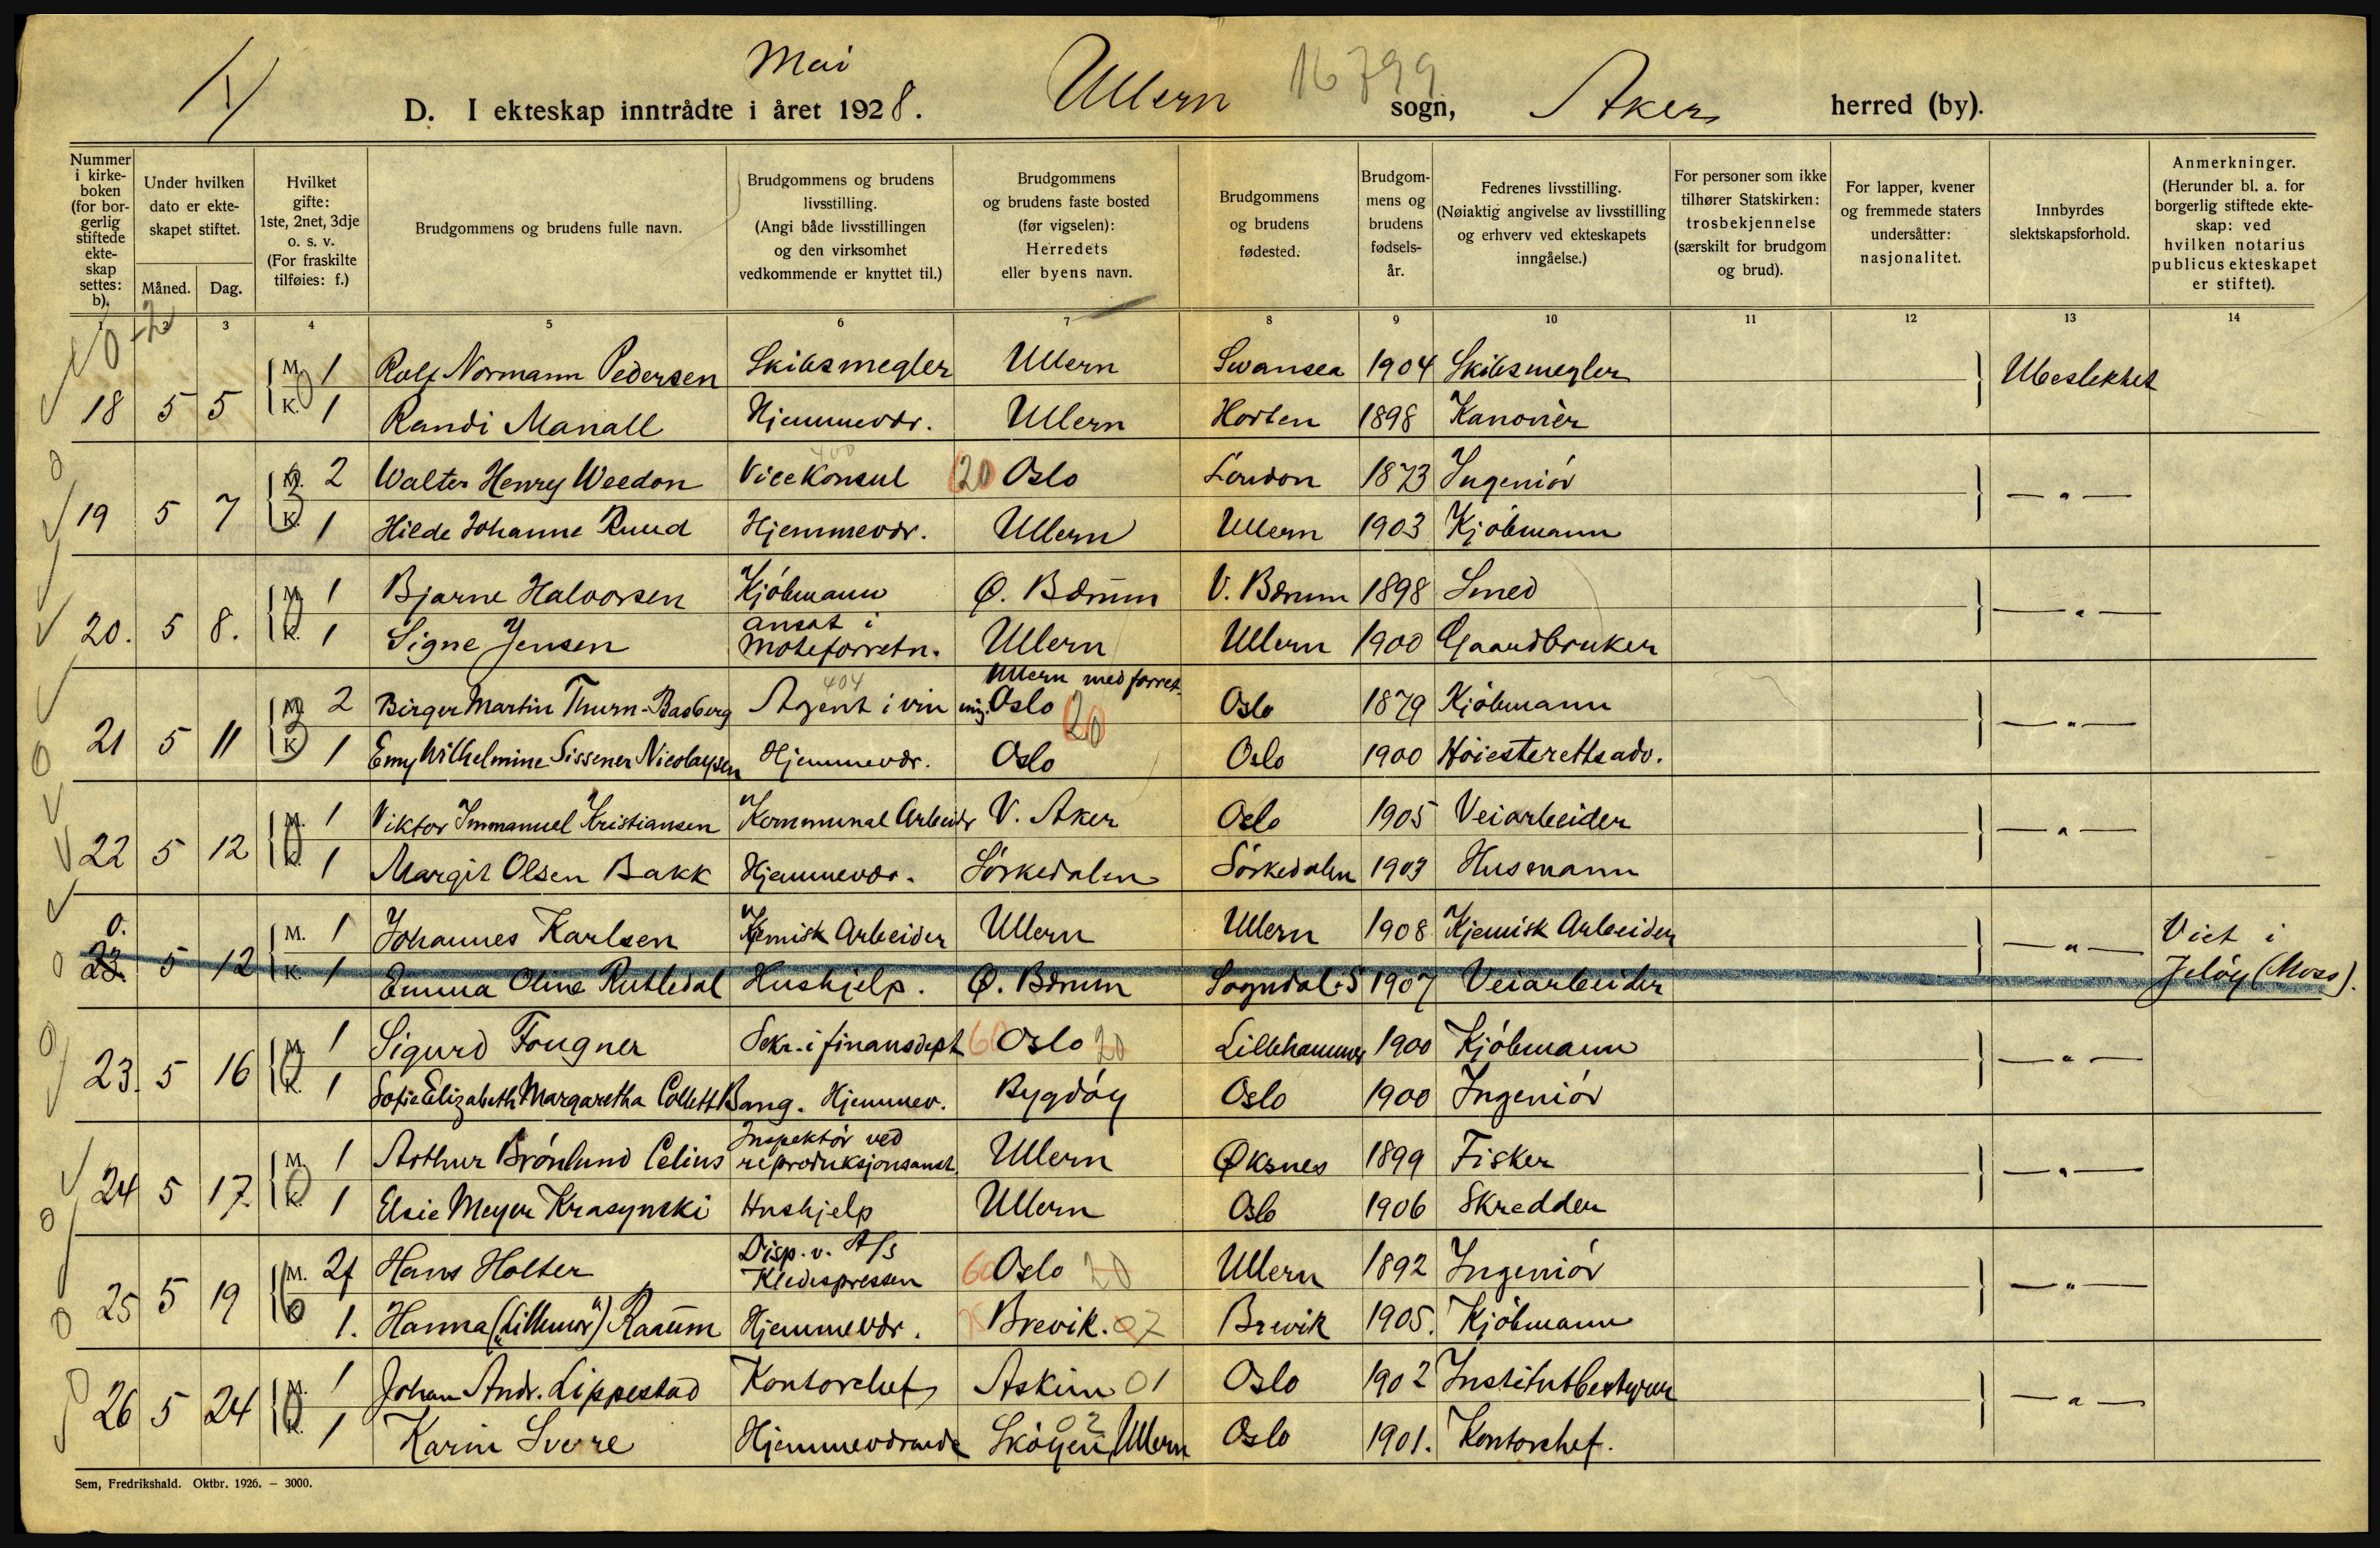 Mai
D. I ekteskap inntrådte i året 1928. Ullern sogn, Aker herred (by).
16799
Nummer i kirkeboken (for borgerlig stiftede ekteskap settes: b).
Under hvilken dato er ekteskapet stiftet.
Måned. Dag.
Hvilket gifte: 1ste, 2net, 3dje o. s. v. (For fraskilte tilføies: f.)
Brudgommens og brudens fulle navn.
Brudgommens og brudens livsstilling. (Angi både livsstillingen og den virksomhet vedkommende er knyttet til.)
Brudgommens og brudens faste bosted (før vigselen): Herredets eller byens navn.
Brudgommens og brudens fødested.
Brudgommens og brudens fødselsår.
Fedrenes livsstilling. (Nøiaktig angivelse av livsstilling og erhverv ved ekteskapets inngåelse.)
For personer som ikke tilhører Statskirken: trosbekjennelse (særskilt for brudgom og brud).
For lapper, kvener og fremmede staters undersåtter: nasjonalitet.
Innbyrdes slektskapsforhold.
Anmerkninger. (Herunder bl. a. for borgerlig stiftede ekteskap: ved hvilken notarius publicus ekteskapet er stiftet).
1 2 3 4 5 6 7 8 9 10 11 12 13 14
M. 1 Rolf Normann Pedersen Skibsmegler Ullern Swansea 1904 Skibsmegler Ubeslektet
18 5 5 K. 1 Randi Manall Hjemmevær. Ullern Horten 1898 Kanonèr
M. 2 Walter Henry Weedon Vicekonsul 20 Oslo London 1873 Ingeniór — " —
19 5 7 K. 1 Hilde Johanne Ruud Hjemmevær. Ullern Ullern 1903 Kjóbmann
M. 1 Bjarne Halvorsen Kjóbmann Ø. Bærum V. Bærum 1898 Smed — " —
20. 5 8. K. 1 Signe Jensen ansat i moteforretn. Ullern Ullern 1900 Gaardbruker
M. 2 Birger Martin Thurn-Basberg 404 Agent i vin Ullern med forretning. Oslo 20 Oslo 1879 Kjóbmann — " —
21 5 11 K. 1 Emy Wilhelmine Sissener Nicolaysen Hjemmevær. Oslo Oslo 1900 Høiesterettsadv.
M. 1 Viktor Immanuel Kristiansen Kommunal Arbeider V. Aker Oslo 1905 Veiarbeider — " —
22 5 12 K. 1 Margit Olsen Bakk Hjemmevær. Sórkedalen Sórkedalen 1903 Husmann
0. M. 1 Johannes Karlsen Kjemisk Arbeider Ullern Ullern 1908 Kjemisk Arbeider — " — Viet i
23. 5 12 K. 1 Emma Oline Rutledal Hushjelp. Ø. Bærum Sogndal. S 1907 Veiarbeider Jelóy (Moss).
M. 1 Sigurd Fougner Sekr. i finansdept 60 Oslo 20 Lillehammer 1900 Kjóbmann — " —
23. 5 16 K. 1 Sofie Elizabeth Margaretha Collett Bang. Hjemmev. Bygdóy Oslo 1900 Ingeniór
M. 1 Arthur Brónlund Celius Inspektór ved reproduksjonsanst. Ullern Øksnes 1899 Fisker — " —
24 5 17. K. 1 Elsie Meyer Krasynski Hushjelp Ullern Oslo 1906 Skredder
M. 2f Hans Holter Disp. v. A/s Kledespressen 60 Oslo 20 Ullern 1892 Ingeniór — " —
25 5 19 K. 1. Hanna ("Lillemor") Raaum Hjemmevær. Brevik. 07 Brevik 1905. Kjóbmann
M. 1 Johan Andr. Lippestad Kontorchef Askim 01 Oslo 1902 Institutbestyrer — " —
26 5 24 K. 1 Karin Sverre Hjemmeværende Skóyen, Ullern 02 Oslo 1901. Kontorchef.
Sem, Fredrikshald. Oktbr. 1926. — 3000.